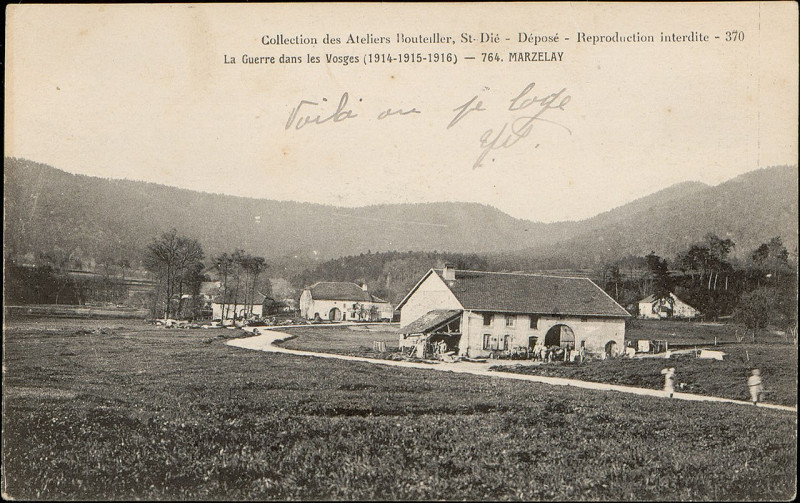 Collection des Ateliers Bouteiller, St-Dié - Déposé - Reproduction interdite - 370
La Guerre dans les Vosges (1914-1915-1916) — 764. MARZELAY
Voilà ou je loge